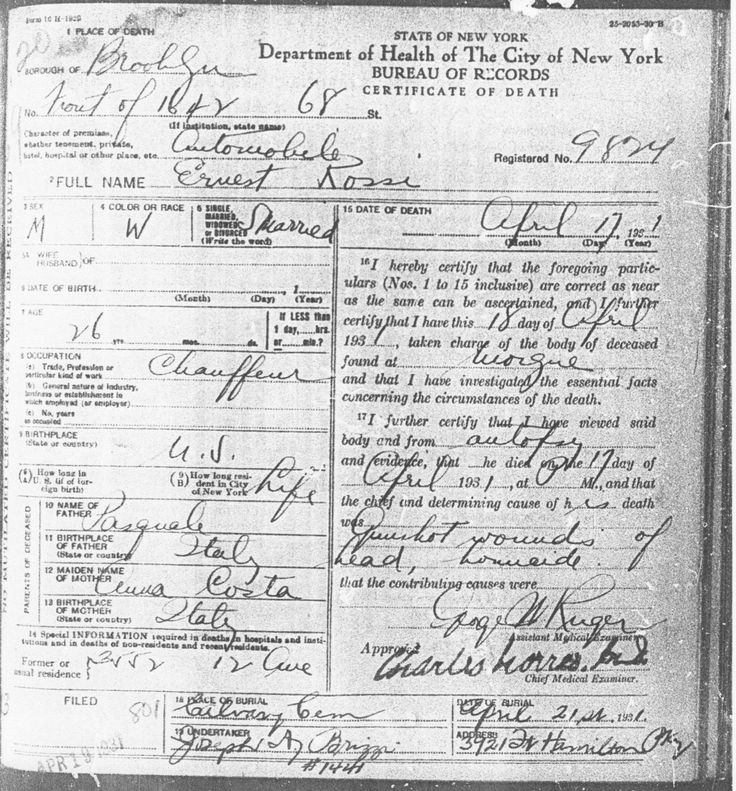 Form 10 H-1929
25-2053-30-B
1 PLACE OF DEATH
STATE OF NEW YORK
Department of Health of The City of New York
BUREAU OF RECORDS
CERTIFICATE OF DEATH
BOROUGH OF Brooklyn
No. front of 1642 68 St.
(If institution, state name)
Character of premises, whether tenement, private, hotel, hospital or other place, etc. Automobile
Registered No. 9824
2 FULL NAME Ernest Rossi
3 SEX M
4 COLOR OR RACE W
5 SINGLE, MARRIED, WIDOWED, or DIVORCED (Write the word) Married
5A WIFE HUSBAND OF
6 DATE OF BIRTH
(Month) (Day) (Year)
7 AGE 26 yrs. mos. ds.
If LESS than 1 day, hrs. or min.?
8 OCCUPATION
(a) Trade, Profession or particular kind of work Chauffeur
(b) General nature of industry, business or establishment in which employed (or employer)
(c) No. years so occupied
9 BIRTHPLACE (State or country) U.S.
(A) How long in U. S. (if of foreign birth)
(9 B) How long resident in City of New York Life
PARENTS OF DECEASED
10 NAME OF FATHER Pasquale
11 BIRTHPLACE OF FATHER (State or country) Italy
12 MAIDEN NAME OF MOTHER Anna Costa
13 BIRTHPLACE OF MOTHER (State or country) Italy
14 Special INFORMATION required in deaths in hospitals and institutions and in deaths of non-residents and recent residents.
Former or usual residence 12 Ave
15 DATE OF DEATH April 17, 1931
(Month) (Day) (Year)
16 I hereby certify that the foregoing particulars (Nos. 1 to 15 inclusive) are correct as near
as the same can be ascertained, and I further
certify that I have this 18 day of April
1931, taken charge of the body of deceased
found at morgue
and that I have investigated the essential facts
concerning the circumstances of the death.
17 I further certify that I have viewed said
body and from autopsy
and evidence, that he died on the 17 day of
April 1931, at M., and that
the chief and determining cause of his death
was Gunshot wounds of
head, homicide.
that the contributing causes were
George W Ruger
Assistant Medical Examiner
Approved Charles Norris, M.D.
Chief Medical Examiner.
FILED
APR 19 1931
801
18 PLACE OF BURIAL Calvary Cem
DATE OF BURIAL April 21st, 1931.
19 UNDERTAKER Joseph Brizzi
#1441
ADDRESS 3921 Ft Hamilton Pkwy